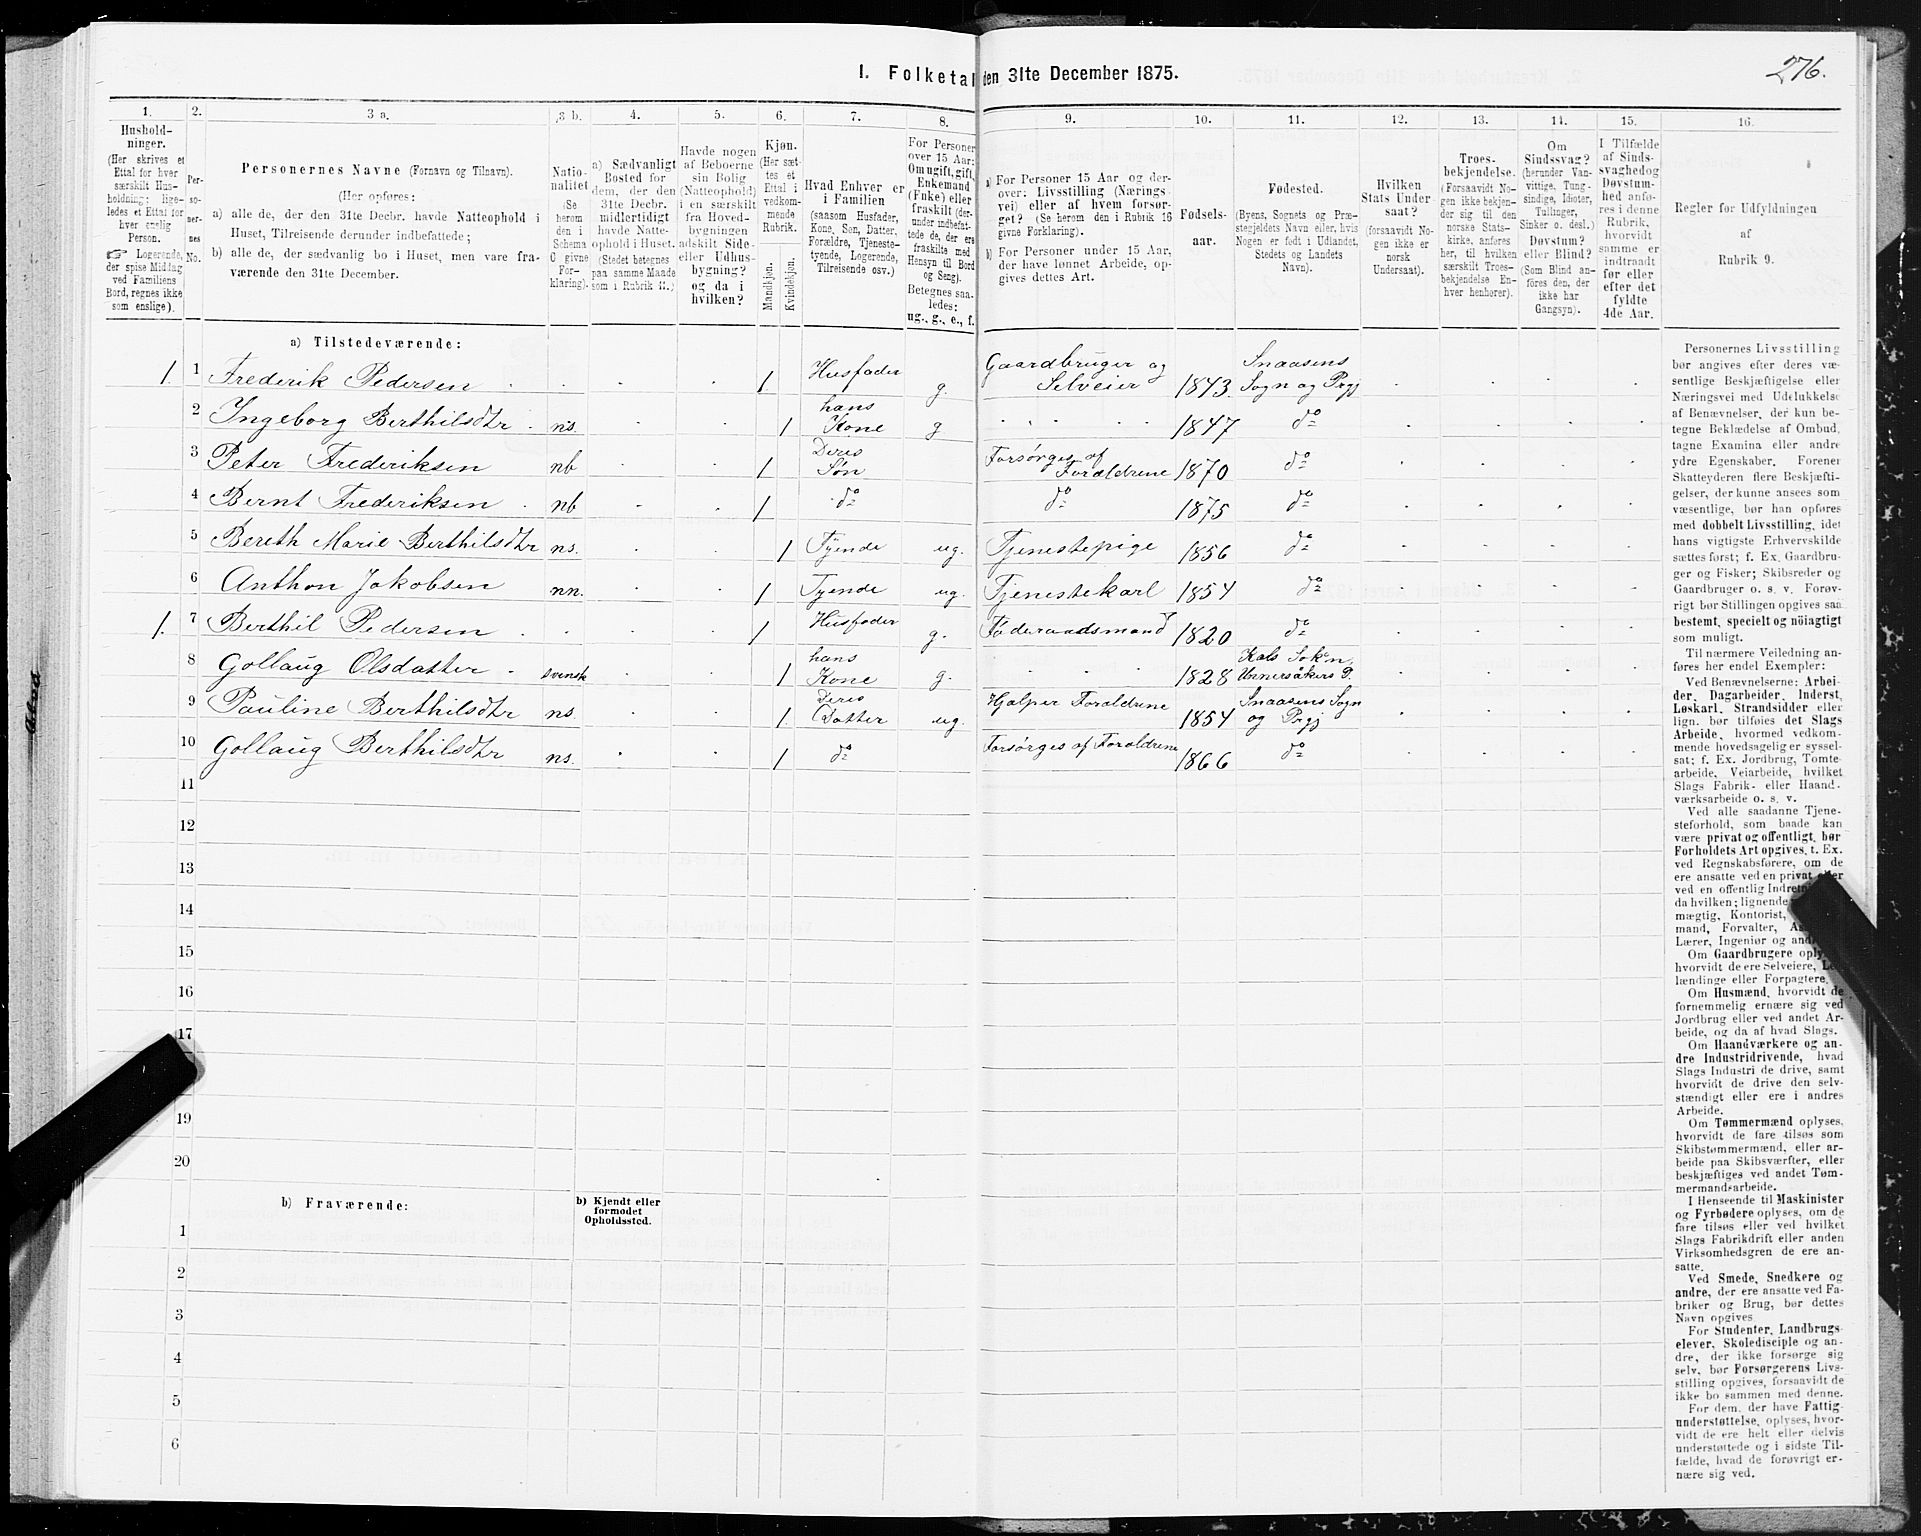 I. Folketal den 31te December 1875.
276.
1.
Husholdninger.
(Her skrives et
Ettal for hver
særskilt Husholdning; ligeledes et Ettal for
hver enslig
Person.
☞ Logerende,
der spise Middag
ved Familiens
Bord, regnes ikke
som enslige).
2.
Personernes
No.
3 a.
Personernes Navne (Fornavn og Tilnavn).
(Her opføres:
a) alle de, der den 31te Decbr. havde Natteophold i
Huset, Tilreisende derunder indbefattede;
b) alle de, der sædvanlig bo i Huset, men vare fraværende den 31te December.
3 b.
Nationalitet
(Se
herom
den i
Schema
O givne
Forklaring).
4.
a) Sædvanligt
Bosted for
dem, der den
31te Decbr.
midlertidigt
havde Natteophold i Huset.
(Stedet betegnes
paa samme Maade
som i Rubrik 11.)
5.
Havde nogen
af Beboerne
sin Bolig
(Natteophold)
i en særskilt
fra Hovedbygningen
adskilt Side-
eller Udhusbygning?
og da i
hvilken?
6.
Kjøn.
(Her sættes et
Ettal i
vedkommende
Rubrik.
Mandkjøn.
Kvindekjøn.
7.
Hvad Enhver er
i Familien
(saasom Husfader,
Kone, Søn, Datter,
Forældre, Tjenestetyende, Logerende,
Tilreisende osv.)
8.
For Personer
over 15 Aar:
Om ugift, gift,
Enkemand
(Enke) eller
fraskilt (derunder indbefattede de, der ere
fraskilte med
Hensyn til Bord
og Seng).
Betegnes saaledes:
ug., g., e., f.
9.
a) For Personer 15 Aar og derover: Livsstilling (Næringsvei) eller af hvem forsørget? (Se herom den i Rubrik 16
givne Forklaring).
b) For Personer under 15 Aar,
der have lønnet Arbeide, opgives dettes Art.
10.
Fødselsaar.
11.
Fødested.
(Byens, Sognets og Præstegjeldets Navn eller, hvis
Nogen er født i Udlandet,
Stedets og Landets
Navn).
12.
Hvilken
Stats Undersaat?
(forsaavidt Nogen ikke er
norsk
Undersaat).
13.
Troesbekjendelse.
(Forsaavidt Nogen ikke bekjender sig til den
norske Statskirke, anføres
her, til hvilken
særskilt Troesbekjendelse Enhver henhører).
14.
Om
Sindssvag?
(herunder Vanvittige, Tungsindige, Idioter,
Tullinger,
Sinker o. desl.)
Døvstum?
eller Blind?
(Som Blind anføres den, der
ikke har
Gangsyn).
15.
I Tilfælde
af Sindssvaghed og
Døvstumhed anføres i denne
Rubrik,
hvorvidt
samme er
indtraadt
før eller
efter det
fyldte
4de Aar.
16.
Regler for Udfyldningen
af
Rubrik 9.
a) Tilstedeværende:
1. 1 Frederik Pedersen . . . 1. Husfader g. Gaardbruger og Selveier 1843. Snaasens Sogn og Prgj
2 Ingeborg Berthilsdtr. ns. . . 1 hans Kone g . . . . 1847 do
3 Peter Frederiksen nb . . 1 Deres Søn Forsørges af Forældrene 1870 do
4 Bernt Frederiksen . nb . . 1 do do 1875 do
5 Bereth Marie Berthilsdtr ns. . . 1 Tyende ug. Tjenestepige 1856 do
6 Anthon Jakobsen nn. . . 1 Tyende ug. Tjenestekarl 1854 do
1. 7 Berthil Pedersen . . . . 1 Husfader g. Föderaadsmand 1820 do
8 Gollaug Olsdatter . svensk 1 hans Kone g. . . 1828 Kals Sokn, Unnersåkers P.
9 Pauline Berthilsdtr ns. . . 1. Deres Datter ug. Hjælper Forældrene 1854 Snaasens Sogn og Prgj
10 Gollaug Berthilsdtr ns. . . 1 do Forsørges af Forældrene 1866 do
11
12
13
14
15
16
17
19
20
b) Fraværende:
b) Kjendt eller
formodet
Opholdssted.
1
2
3
4
5
6
Personernes Livsstilling
bør angives efter deres væsentlige Beskjæftigelse eller
Næringsvei med Udelukkelse
af Benævnelser, der kun betegne Beklædelse af Ombud,
tagne Examina eller andre
ydre Egenskaber. Forener
Skatteyderen flere Beskjæftigelser, der kunne ansees som
væsentlige, bør han opføres
med dobbelt Livsstilling, idet
hans vigtigste Erhvervskilde
sættes først; f. Ex. Gaardbruger og Fisker; Skibsreder og
Gaardbruger o. s. v. Forøvrigt bør Stillingen opgives saa
bestemt, specielt og nöiagtigt
som muligt.
Til nærmere Veiledning anføres her endel Exempler:
Ved Benævnelserne: Arbeider, Dagarbeider, Inderst,
Løskarl, Strandsidder eller
lign. bør tilføies det Slags
Arbeide, hvormed vedkommende hovedsagelig er sysselsat; f. Ex. Jordbrug, Tomtearbeide, Veiarbeide, hvilket
Slags Fabrik- eller Haandværksarbeide o. s. v.
Ved alle saadanne Tjenesteforhold, som baade kan
være privat og offentligt, bør
Forholdets Art opgives, t. Ex.
ved Regnskabsførere, om de
ere ansatte ved en privat eller
ved en offentlig
da hvilken; lignende
mægtig, Kontorist,
mand, Forvalter,
Lærer, Ingeniør og
Om Gaardbrugere
hvorvidt de ere Selveiere,
lændinge eller Forpagtere.
Om Husmænd, hvorvidt de
fornemmelig ernære sig ved
Jordbrug eller ved andet Arbeide, og da af hvad Slags.
Om Haandværkere og andre Industridrivende, hvad
Slags Industri de drive, samt
hvorvidt de drive den selvstændigt eller ere i andres
Arbeide.
Om Tømmermænd oplyses,
hvorvidt de fare tilsøs som
Skibstømmermænd, eller arbeide paa Skibsværfter, eller
beskjæftiges ved andet Tømmermandsarbeide.
I Henseende til Maskinister
og Fyrbødere oplyses, om de
fare tilsøs eller ved hvilket
Slags Fabrikdrift eller anden
Virksomhedsgren de ere ansatte.
Ved Smede, Snedkere og
andre, der ere ansatte ved Fabriker og Brug, bør dettes
Navn opgives
For Studenter, Landbrugselever, Skoledisciple og andre, der ikke forsørge sig
selv, bør Forsørgerens Livsstilling opgives, forsaavidt de
ikke bo sammen med denne.
For dem, der have Fattigunderstøttelse, oplyses, hvorvidt de ere helt eller delvis
understøttede og i sidste Tilfælde, hvad de forøvrigt ernære sig ved.